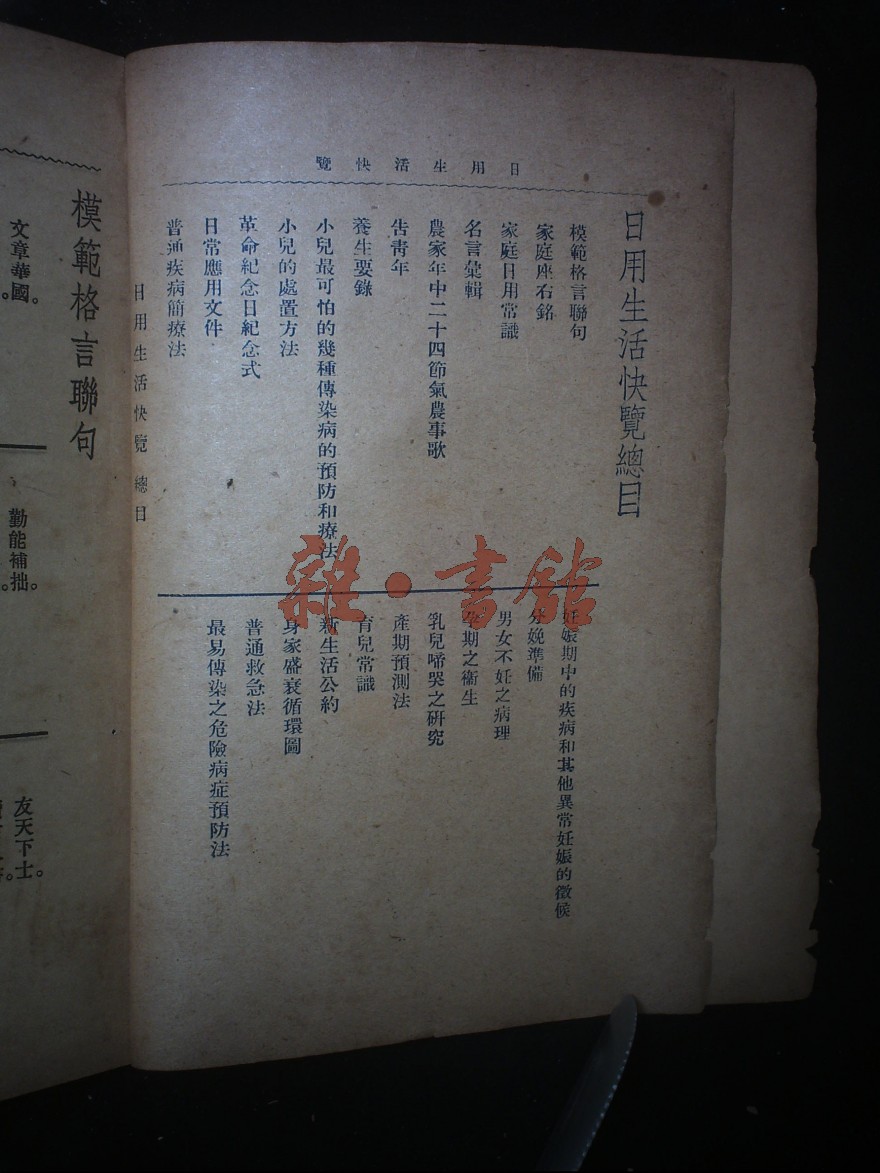 日用生活快覽
日用生活快覽總目
模範格言聯句
家庭座右銘
家庭日用常識
名言彙輯
農家年中二十四節氣農事歌
告青年
養生要錄
小兒最可怕的幾種傳染病的預防和療法
小兒的處置方法
革命紀念日紀念式
日常應用文件
普通疾病簡療法
妊娠期中的疾病和其他異常妊娠的徵候
分娩準備
男女不妊之病理
期之衞生
乳兒啼哭之研究
產期預測法
育兒常識
新生活公約
身家盛衰循環圖
普通救急法
最易傳染之危險病症預防法
日用生活快覽 總目
模範格言聯句
文章華國。
勤能補拙。
友天下士。
雜·書館